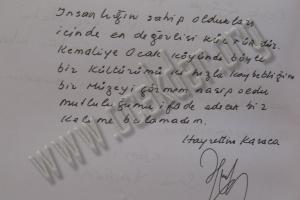 İnsanlığın sahip oldukları
içinde en değerlisi kültürdür.
Kemaliye Ocak köyünde böyle
bir kültürümü hızla kaybettiğimiz
bir Müzeyi görmem nasip oldu
mutluluğumu ifade edecek bir
kelime bulamadım.
Hayrettin Karaca